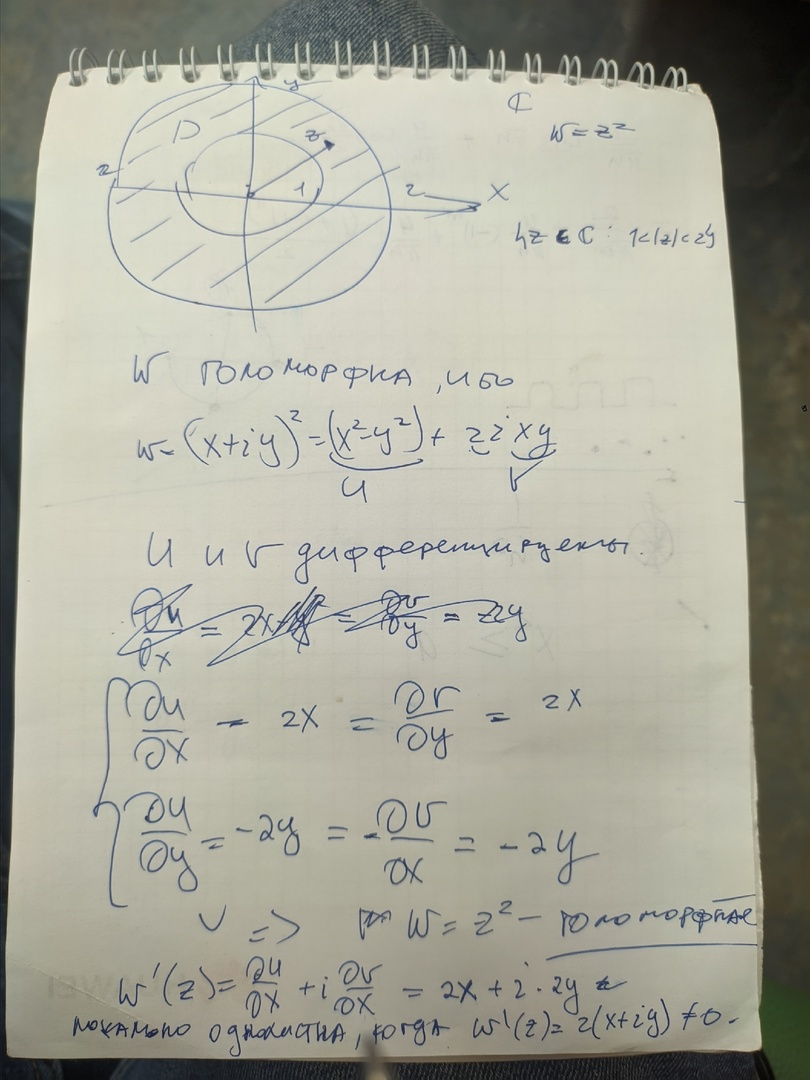 y
ℂ
W = z²
D
z
2
1
2
X
{z ∈ ℂ : 1<|z|<2}
W голоморфна, ибо
w = (x+iy)² = (x²-y²) + 2ixy
u
v
u и v дифференцируемы.
∂u/∂x = 2x = ∂v/∂y = 2x
∂u/∂y = -2y = -∂v/∂x = -2y
=> W = z² - голоморфная
W'(z) = ∂u/∂x + i ∂v/∂x = 2x + i·2y
локально однолистна, когда W'(z) = 2(x+iy) ≠ 0.